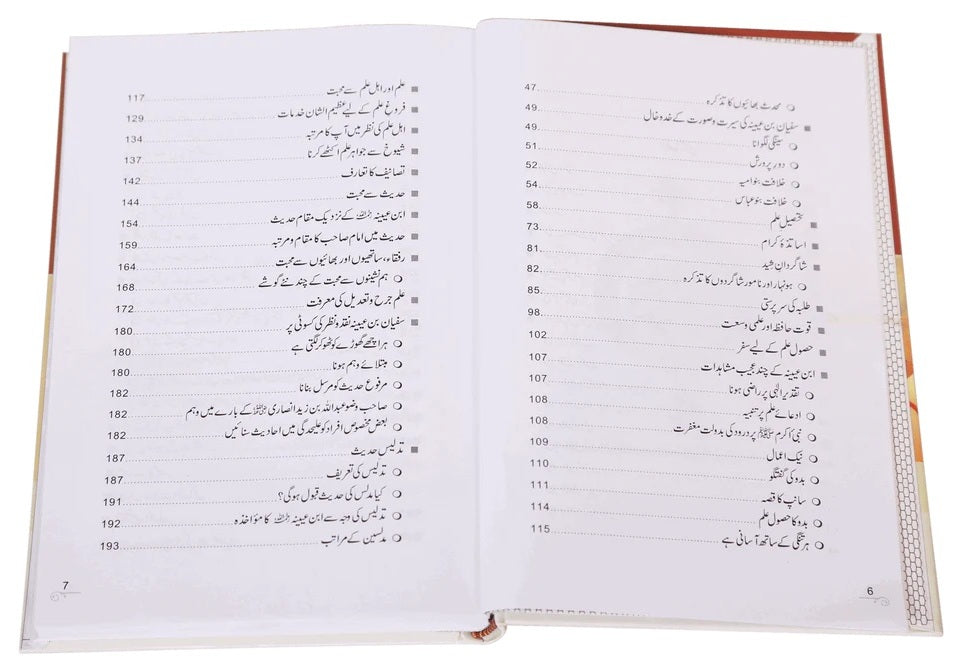 ○ محدث بھائیوں کا تذکرہ 47
■ سفیان بن عیینہ کی سیرت وصورت کے خدوخال 49
○ سینگی لگوانا 49
○ دور پرورش 51
○ خلافت بنوامیہ 52
○ خلافت بنوعباس 54
■ تحصیل علم 58
■ اساتذۂ کرام 73
■ شاگردانِ شید 81
○ ہونہار اور نامور شاگردوں کا تذکرہ 82
■ طلبہ کی سرپرستی 85
■ قوت حافظہ اور علمی وسعت 98
■ حصول علم کے لیے سفر 102
■ ابن عیینہ کے چند عجیب مشاہدات 107
○ تقدیر الٰہی پر راضی ہونا 107
○ ادعائے علم پر تنبیہ 108
○ نبی اکرم ﷺ پر درود کی بدولت مغفرت 108
○ نیک اعمال 109
○ بدو کی گفتگو 110
○ سانپ کا قصہ 111
○ بدو کا حصول علم 114
○ ہر تنگی کے ساتھ آسانی ہے 115
6
■ علم اور اہل علم سے محبت 117
■ فروغ علم کے لیے عظیم الشان خدمات 129
■ اہل علم کی نظر میں آپ کا مرتبہ 134
■ شیوخ سے جواہر علم اکٹھے کرنا 137
■ تصانیف کا تعارف 142
■ حدیث سے محبت 144
■ ابن عیینہ رحمہ اللہ کے نزدیک مقام حدیث 154
■ حدیث میں امام صاحب کا مقام و مرتبہ 159
■ رفقاء، ساتھیوں اور بھائیوں سے محبت 164
○ ہم نشینوں سے محبت کے چند نئے گوشے 168
■ علم جرح و تعدیل کی معرفت 172
■ سفیان بن عیینہ نقد و نظر کی کسوٹی پر 180
○ ہر اچھے گھوڑے کو ٹھوکر لگتی ہے 180
○ مبتلائے وہم ہونا 180
○ مرفوع حدیث کو مرسل بنانا 182
○ صاحب وضو عبداللہ بن زید انصاری رضی اللہ عنہ کے بارے میں وہم 182
○ بعض مخصوص افراد کو علیحدگی میں احادیث سنائیں 182
■ تدلیس حدیث 187
○ تدلیس کی تعریف 187
○ کیا مدلس کی حدیث قبول ہوگی؟ 191
○ تدلیس کی وجہ سے ابن عیینہ رحمہ اللہ کا مؤاخذہ 192
○ مدلسین کے مراتب 193
7